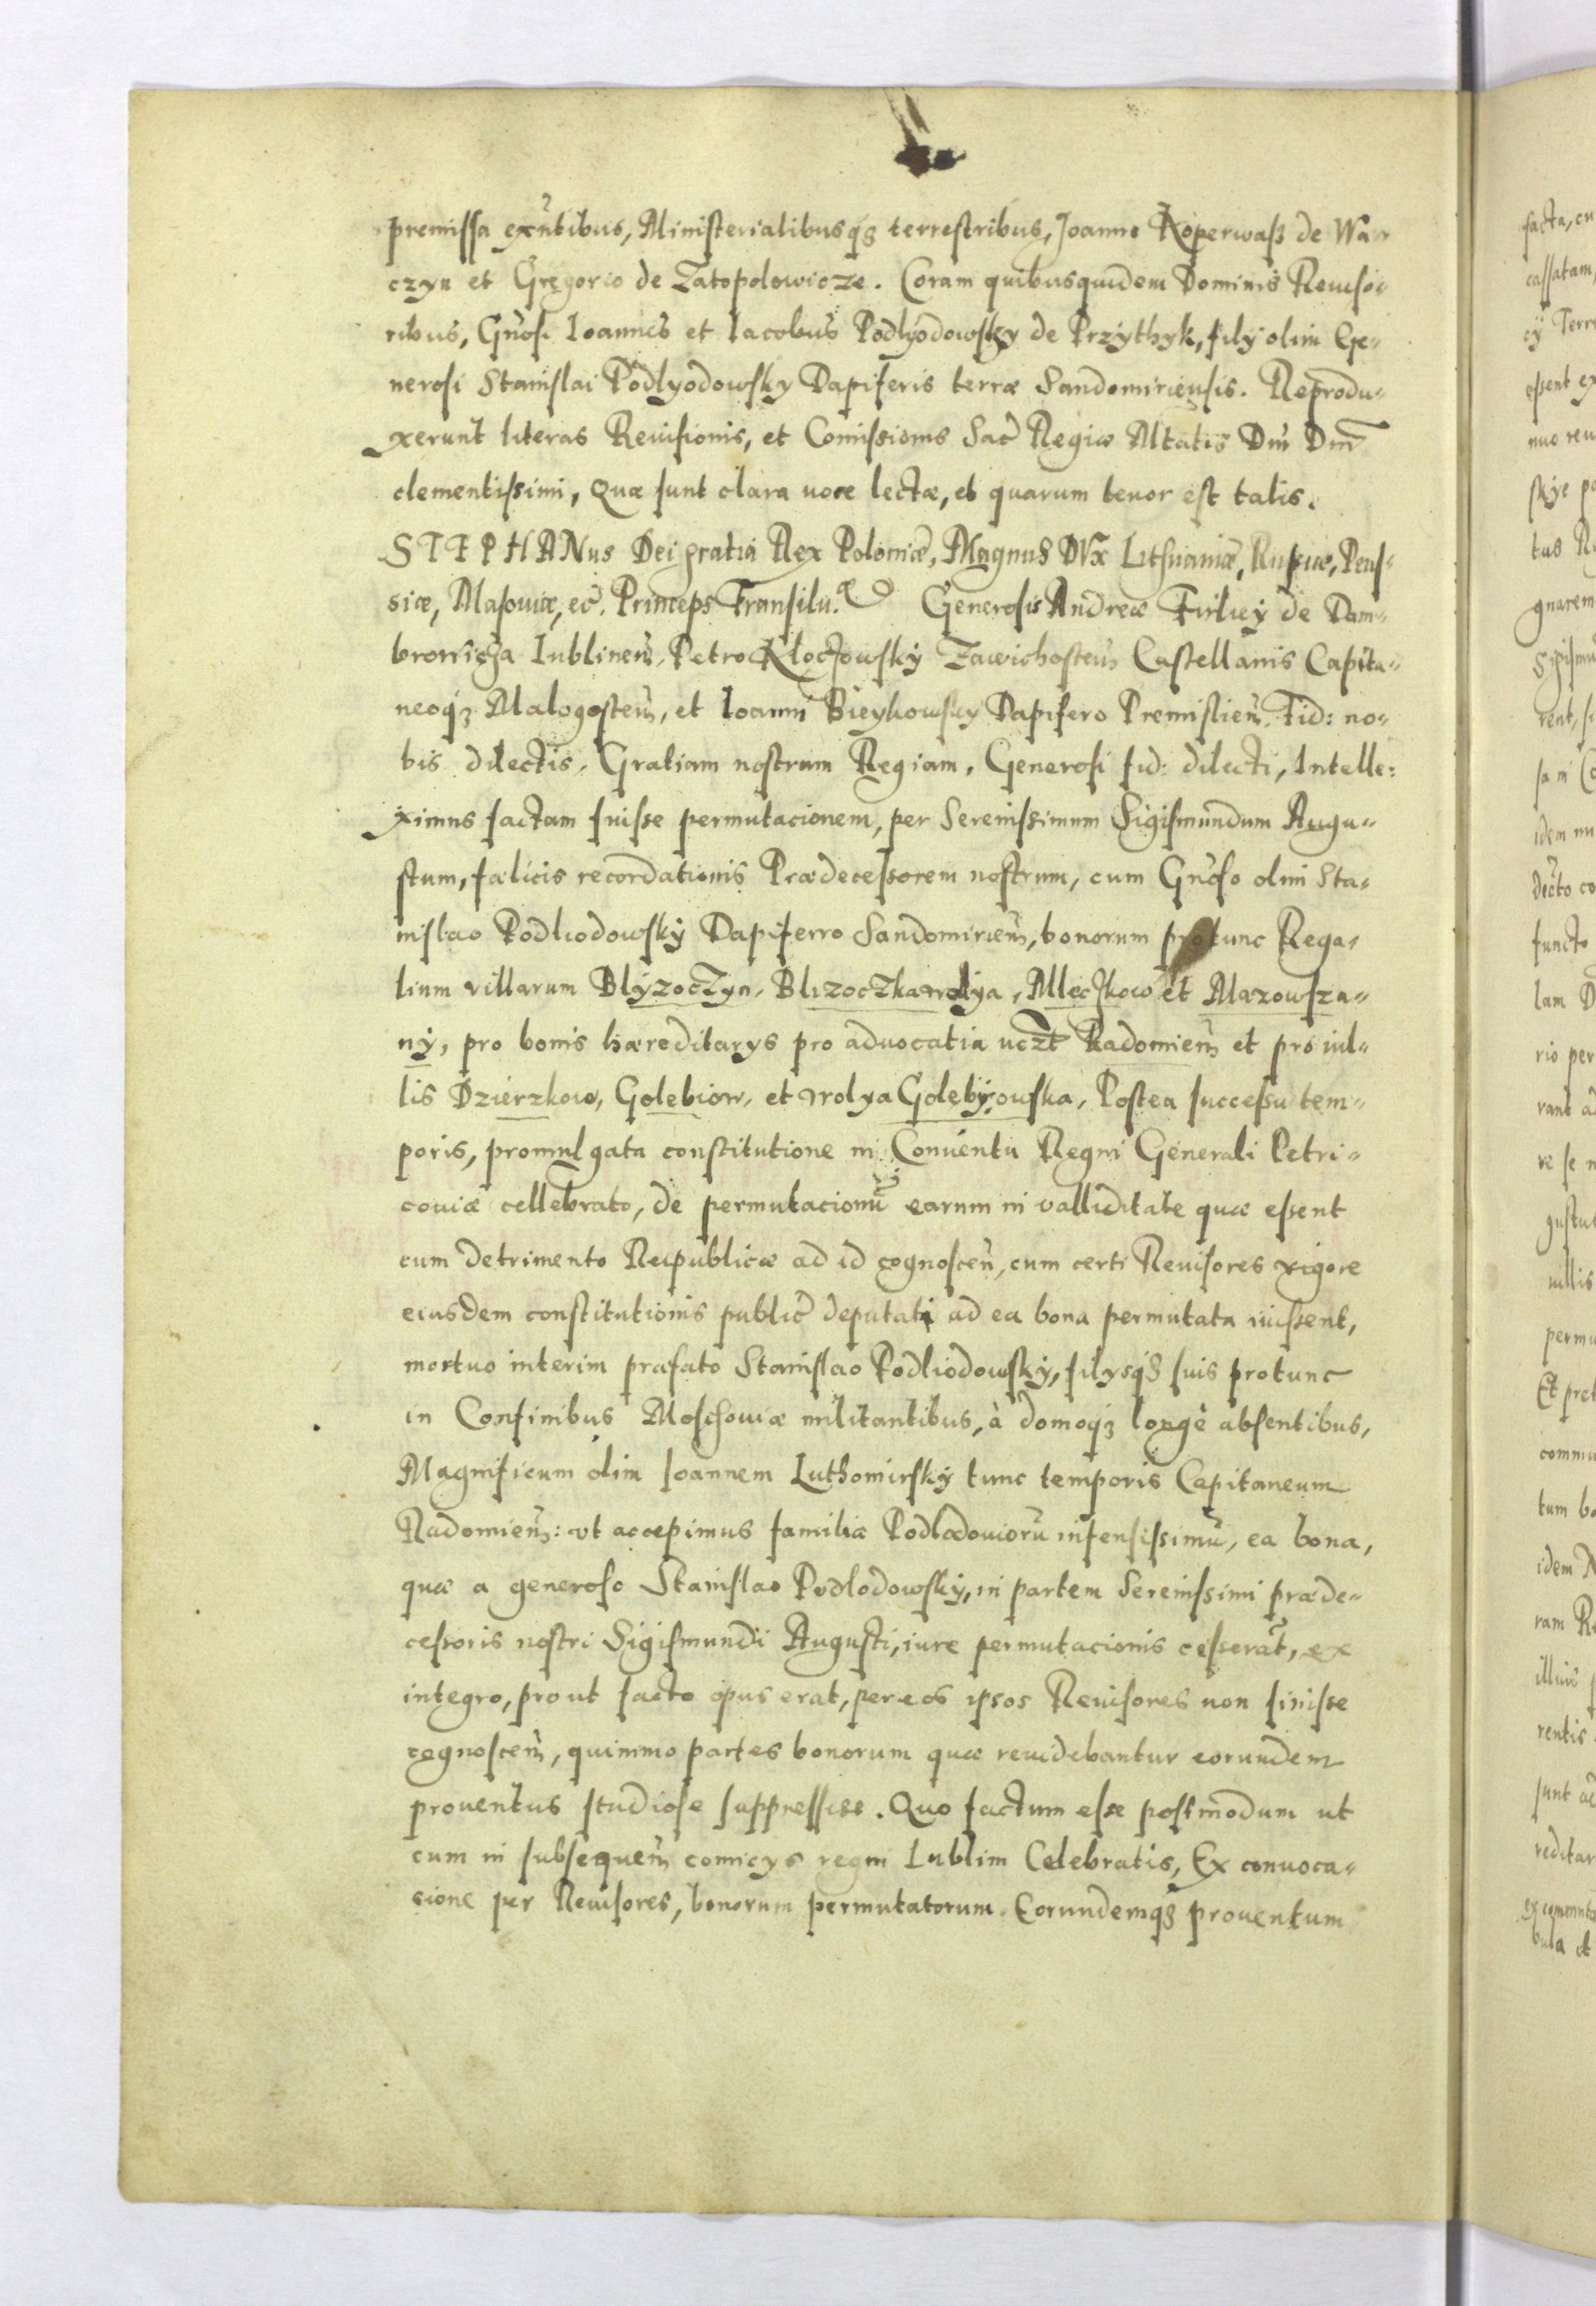 premissa exñtibus, Ministerialibusq̃ȝ terrestribus, Joanne Koperwasz de Wa-
czyn et Gregorio de Zatopolowicze. Coram quibusquidem Dominis Reuiso-
ribus, Gñosi Ioannes et Iacobus Podlyodowsky de Przythyk, filÿ olim Ge-
nerosi Stanislai Podlyodowsky Dapiferis terræ Sandomiriensis. Reprodu-
xerunt literas Reuisionis, et Comissionis Sac̃ Regiæ Mtatis Dñi Dñi
clementissimi, Quæ sunt clara uoce lectæ, et quarum tenor est talis.
STEPHANus Dei gratia Rex Poloniæ, Magnus DVx Lithuaniæ, Russiæ, Prus-
siæ, Masouiæ, ec̃. Princeps Transilu. Generosis Andreæ Firlieÿ de Dam-
browicza Lublineñ, Petro Kloczowskÿ Zawichosteñ Castellanis Capita-
neoqȝ Malogosteñ, et Ioanni Bieykowsky Dapifero Premislieñ. Fid: no-
bis dilectis. Gratiam nostram Regiam. Generosi fid: dilecti, Intelle-
ximus factam fuisse permutacionem, per Serenissimum Sigismundum Augu-
stum, fælicis recordationis Prædecessorem nostrum, cum Gñoso olim Sta-
nislao Podliodowskÿ Dapiferro Sandomirieñ, bonorum protunc Rega-
lium villarum Blÿzoczyn, Blizoczkawolya, Mleczkow et Mazowsza-
nÿ, pro bonis hæreditarys pro aduocatia uczt Radomieñ et pro uil-
lis Dzierzkow, Golebiow, et wolya Golebÿowska, Postea successu tem-
poris, promulgata constitutione in Conuentu Regni Generali Petri-
couiæ cellebrato, de permutacionũ earum in valliditate quæ essent
cum detrimento Reipublicæ ad id cognosceñ, cum certi Reuisores vigore
eiusdem constitutionis public̃ deputati ad ea bona permutata iuissent,
mortuo interim præfato Stanislao Podliodowskÿ, filysq̃ȝ suis protunc
in Confinibus Moschouiæ militantibus, à domoqȝ longè absentibus,
Magnificum olim Ioannem Luthomirskÿ tunc temporis Capitaneum
Radomieñ: ut accepimus familiæ Podlodouiorũ infensissimũ, ea bona,
quæ a generoso Stanislao Podlodowskÿ, in partem Serenissimi præde-
cessoris nostri Sigismundi Augusti, iure permutacionis cesserãt, ex
integro, prout facto opus erat, per eos ipsos Reuisores non siuisse
cognosceñ, quimmo partes bonorum quæ reuidebantur eorundem
prouentus studiose suppressisse. Quo factum esse postmodum ut
cum in subsequeñ comicys regni Lublini Celebratis, Ex conuoca-
cione per Reuisores, bonorum permutatorum. Eorundemq̃ȝ prouentum